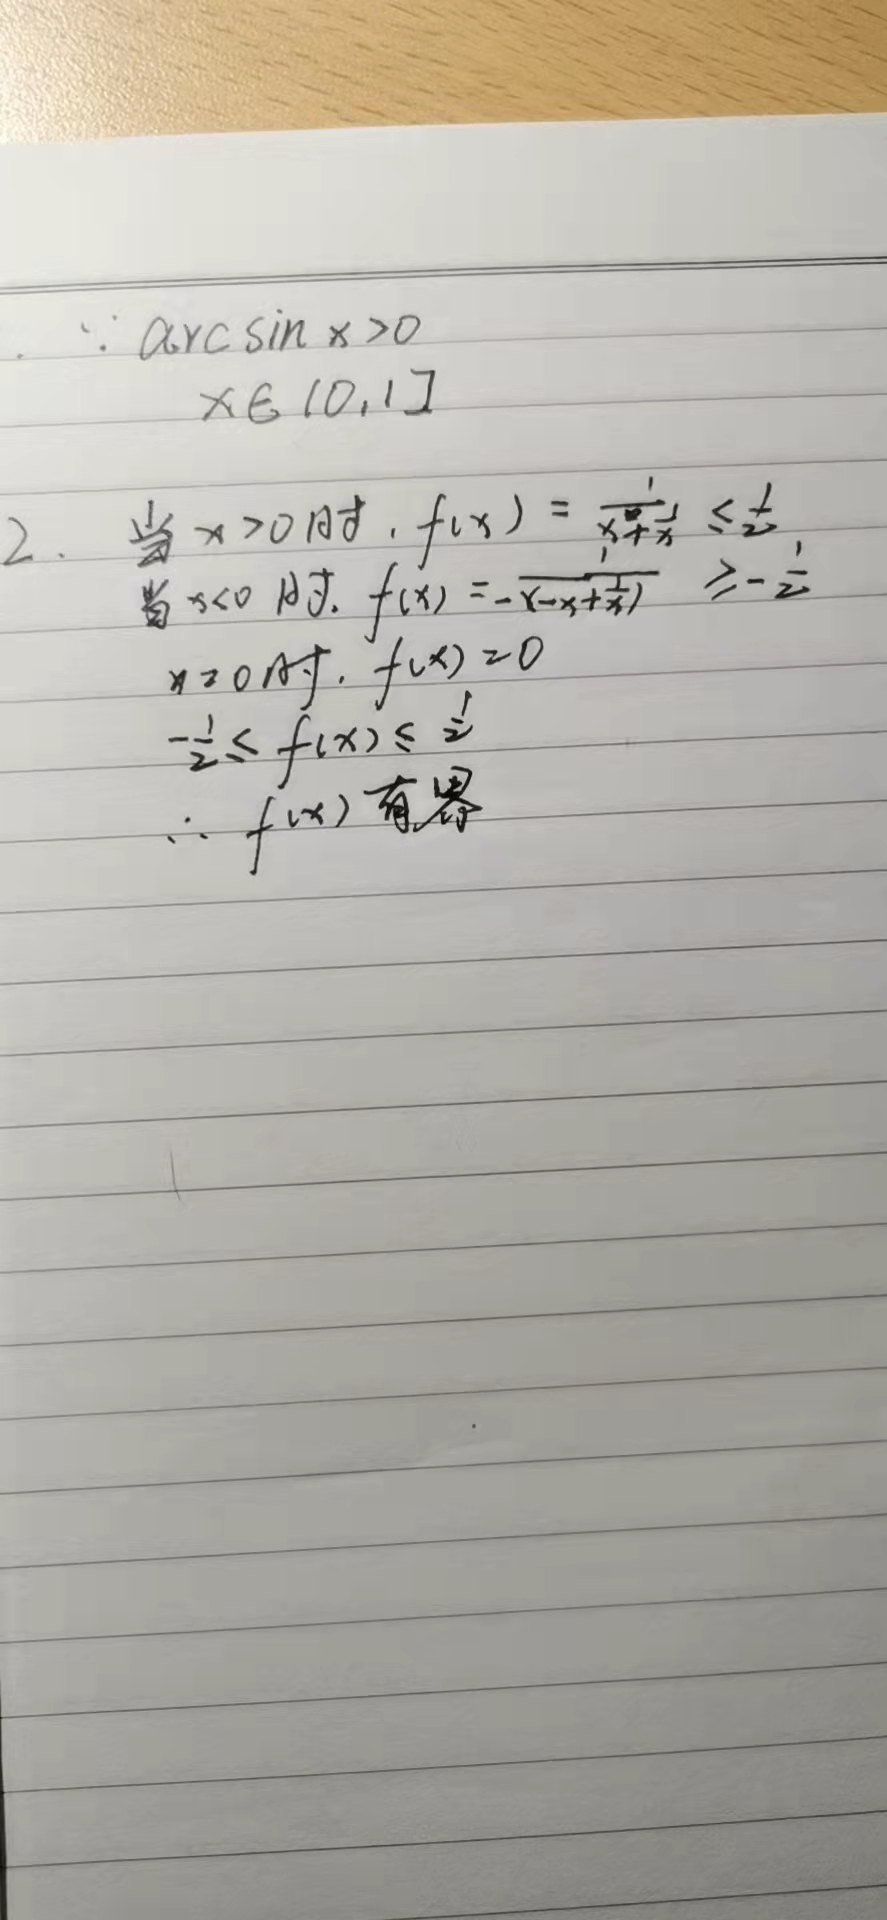 . ∵ arcsin x>0
x∈(0,1]
2. 当x>0时, f(x) = 1/(x+1/x) ≤ 1/2
当x<0时. f(x) = -1/(-x+1/x) ≥ -1/2
x=0时. f(x)=0
-1/2 ≤ f(x) ≤ 1/2
∴ f(x)有界